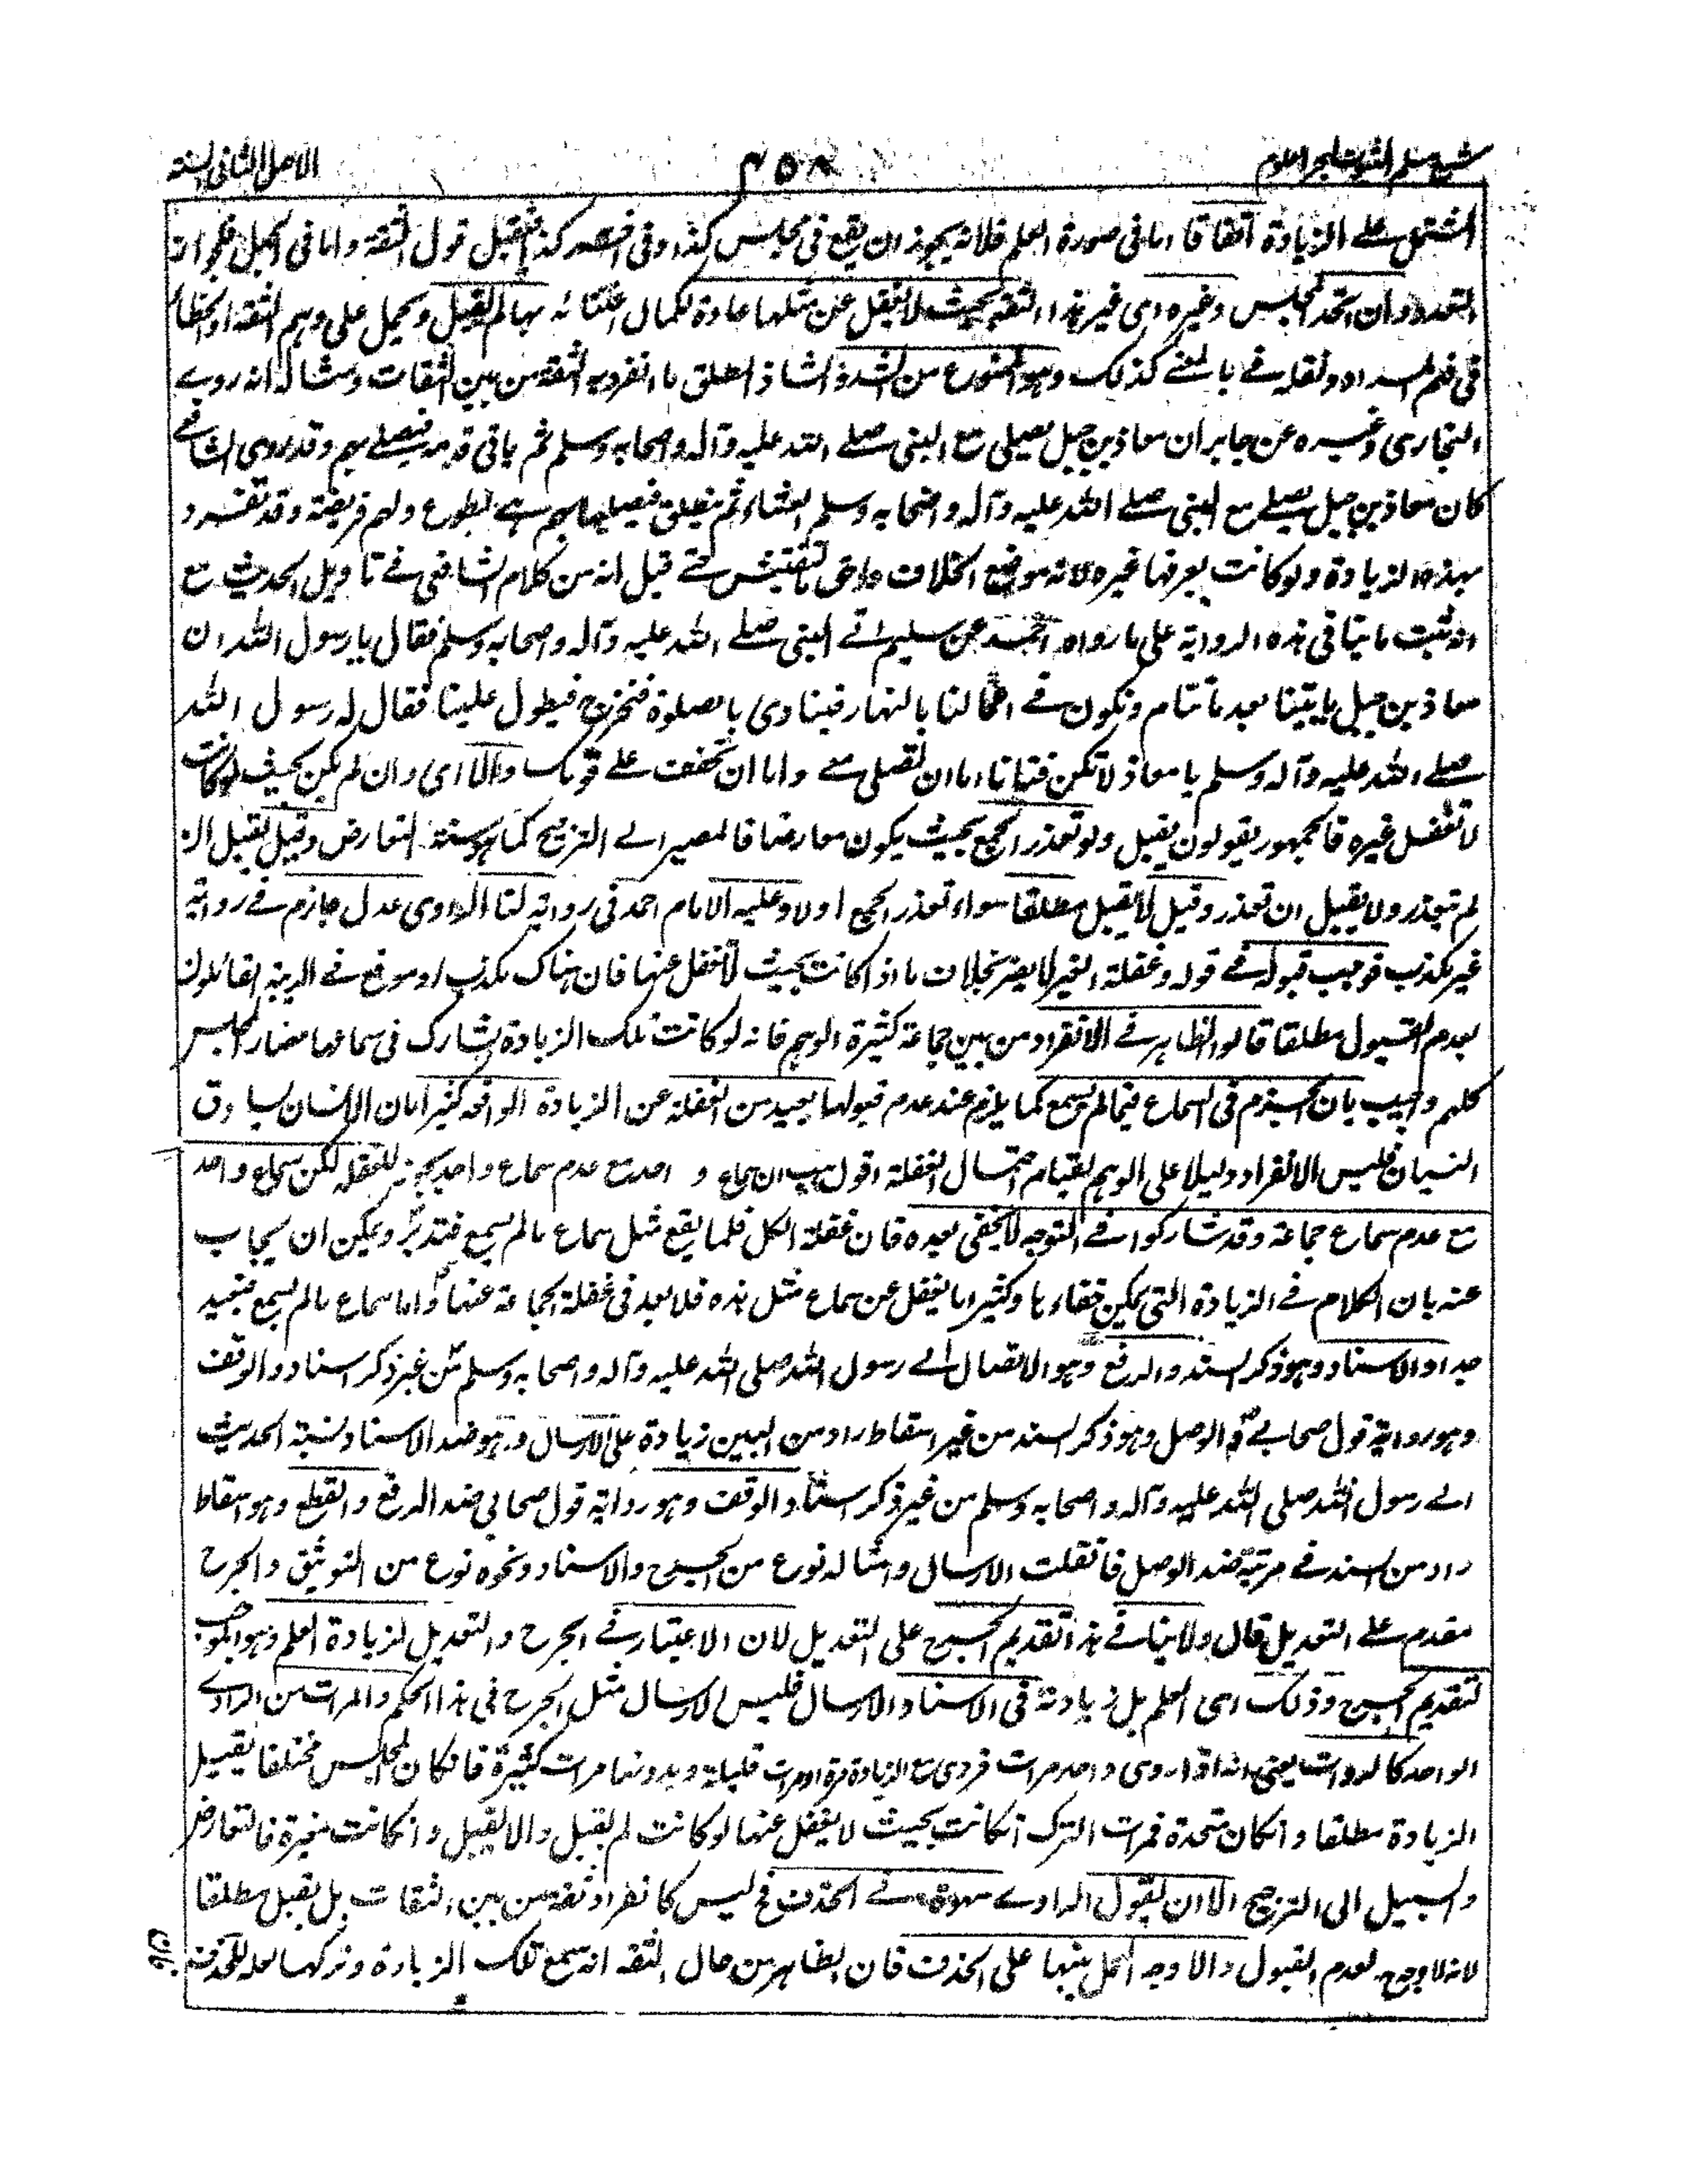 شرح مسلم الثبوت لبحر العلوم ٤٥٨ الاصل الثاني السنة
المشتمل على الزيادة اتفاقا اما في صورة العلم فلانه يجوز ان يقع في مجلس كذا وفي آخر كذا فيقبل قول الثقة واما في الجهل فلجواز
التعدد وان اتحد المجلس وغيره اى غير هذا الثقة بحيث لا يغفل عن مثلها عادة لكمال اعتنائه بها لم يقبل ويحمل على وهم الثقة او الخطأ
في فهم المراد ونقله في بالمعنى كذلك وهو الممنوع من الشذوذ الشاذ المطلق ما انفرد به الثقة من بين الثقات ومثاله انه روى
البخاري وغيره عن جابر ان معاذ بن جبل يصلي مع النبي صلى الله عليه وآله واصحابه وسلم ثم ياتي قومه فيصلي بهم وقد روى الشافعي
كان معاذ بن جبل يصلي مع النبي صلى الله عليه وآله واصحابه وسلم العشاء ثم ينطلق فيصليها بهم هي له تطوع ولهم فريضة وقد تفرد
بهذه الزيادة ولو كانت يعرفها غيره لانه موضع الخلاف واحق بالتفتيش حتى قيل انه من كلام الشافعي في تاويل الحديث مع
انه ثبت ما ينافي هذه الرواية على ما رواه احمد عن سليم اتى النبي صلى الله عليه وآله واصحابه وسلم فقال يا رسول الله ان
معاذ بن جبل ياتينا بعد ما ننام ونكون في اعمالنا بالنهار فينادي بالصلوة فنخرج فيطول علينا فقال له رسول الله
صلى الله عليه وآله وسلم يا معاذ لا تكن فتانا اما ان تصلي معي واما ان تخفف على قومك والا اى وان لم يكن بحيث لو كانت
لا تغفل غيره فالجمهور يقولون يقبل ولو تعذر الجمع بحيث يكون معارضا فالمصير الى الترجيح كما هو سنة التعارض وقيل يقبل ان
لم يتعذر ولا يقبل ان تعذر وقيل لا يقبل مطلقا سواء تعذر الجمع اولا وعليه الامام احمد في رواية لنا الراوى عدل جازم في رواية
غير مكذب فوجب قبوله في قوله وغفلة الغير لا يضر بخلاف ما اذا كانت بحيث لا تغفل عنها فان هناك مكذب او موقع في الريبة القائلون
بعدم القبول مطلقا قالوا الظاهر في الانفراد من بين جماعة كثيرة الوهم فانه لو كانت تلك الزيادة لشارك في سماعها حضار المجلس
كلهم واجيب بان الجزم في السماع فيما لم يسمع كما يلزم عند عدم قبولها بعيد من الغفلة عن الزيادة الواقعة كثيرا فان الانسان يساوق
النسيان فليس الانفراد دليلا على الوهم لقيام احتمال الغفلة اقول هب ان سماع واحد مع عدم سماع واحد يجوز للغفلة لكن سماع واحد
مع عدم سماع جماعة وقد شاركوا في التوجه لا يخفى بعده فان غفلة الكل قلما يقع مثل سماع ما لم يسمع فتدبر ويمكن ان يجاب
عنه بان الكلام في الزيادة التي يمكن خفاءها وكثيرا ما يغفل عن سماع مثل هذه فلا بعد في غفلة الجماعة عنها واما سماع ما لم يسمع فبعيد
جدا والاسناد وهو ذكر السند والرفع وهو الاتصال الى رسول الله صلى الله عليه وآله واصحابه وسلم من غير ذكر اسناد والوقف
وهو رواية قول صحابي ثم الوصل وهو ذكر السند من غير اسقاط راو من البين زيادة على الارسال وهو ضد الاسناد نسبة الحديث
الى رسول الله صلى الله عليه وآله واصحابه وسلم من غير ذكر اسناد والوقف وهو رواية قول صحابي ضد الرفع والقطع وهو اسقاط
راو من السند في مرتبة ضد الوصل فان قلت الارسال وامثاله نوع من الجرح والاسناد ونحوه نوع من التوثيق والجرح
مقدم على التعديل قال ولا ينافي هذا تقديم الجرح على التعديل لان الاعتبار في الجرح والتعديل لزيادة العلم وهو الموجب
لتقديم الجرح وذلك اى العلم بل زيادته في الاسناد والارسال فليس الارسال مثل الجرح في هذا الحكم والمرات من الراوى
الواحد كالرواة يعني انه اذا روى واحد مرات فروى مع الزيادة مرة او مرات قليلة وبدونها مرات كثيرة فان كان المجلس مختلفا يقبل
الزيادة مطلقا وانكان متحدة فمرات الترك انكانت بحيث لا يغفل عنها لو كانت لم يقبل والا يقبل وانكانت مغيرة فالتعارض
والسبيل الى الترجيح الا ان يقول الراوى سهوت في الحذف فح ليس كانفراد ثقة من بين الثقات بل يقبل مطلقا
لانه لا وجه لعدم القبول والاوجه الحمل بتها على الحذف فان الظاهر من حال الثقة انه سمع تلك الزيادة وتركها لعله للحذف